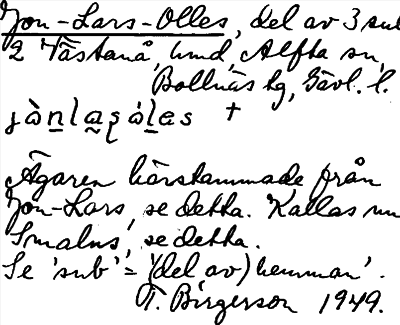 Jon-Lars-Olles, del av 3 sub
2 Västanå, und, Alfta sn,
Bollnäs tg, Gävl. l.
†
Ägaren härstammade från
Jon-Lars, se detta. Kallas nu
Smalns, se detta.
Se 'sub' = '(del av) hemman'.
T. Birgerson 1949.